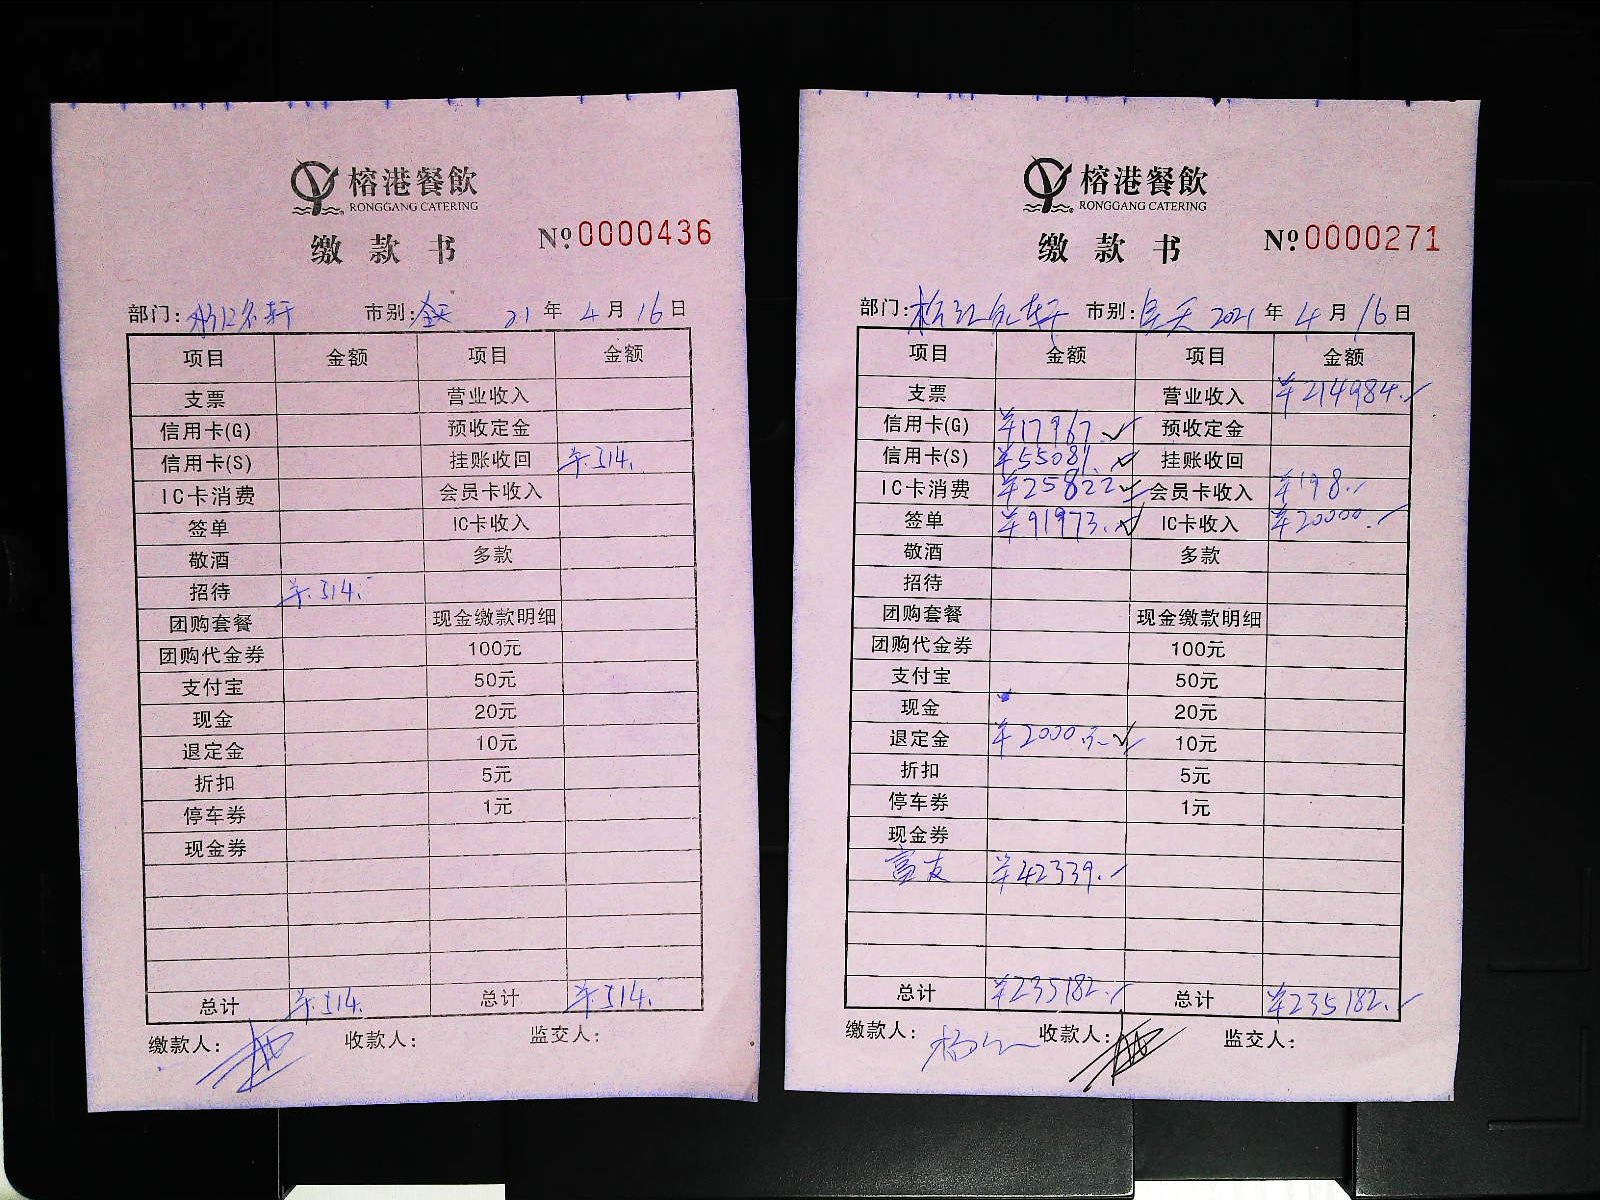 榕港餐飲
RONGGANG CATERING
缴款书 №0000436
部门: 市别:全天 21年4月16日
项目 金额 项目 金额
支票 营业收入
信用卡(G) 预收定金
信用卡(S) 挂账收回 ¥:514.
IC卡消费 会员卡收入
签单 IC卡收入
敬酒 多款
招待 ¥:514.-
团购套餐 现金缴款明细
团购代金券 100元
支付宝 50元
现金 20元
退定金 10元
折扣 5元
停车券 1元
现金券
总计 ¥:514. 总计 ¥:514.
缴款人: 收款人: 监交人:
榕港餐飲
RONGGANG CATERING
缴款书 №0000271
部门: 市别:全天 2021年4月16日
项目 金额 项目 金额
支票 营业收入 ¥214984.
信用卡(G) ¥17967. 预收定金
信用卡(S) ¥55081. 挂账收回
IC卡消费 ¥25822 会员卡收入 ¥198.
签单 ¥91973. IC卡收入 ¥20000.
敬酒 多款
招待
团购套餐 现金缴款明细
团购代金券 100元
支付宝 50元
现金 20元
退定金 ¥2000元 10元
折扣 5元
停车券 1元
现金券
富友 ¥42339.
总计 ¥235182. 总计 ¥235182.
缴款人: 收款人: 监交人: